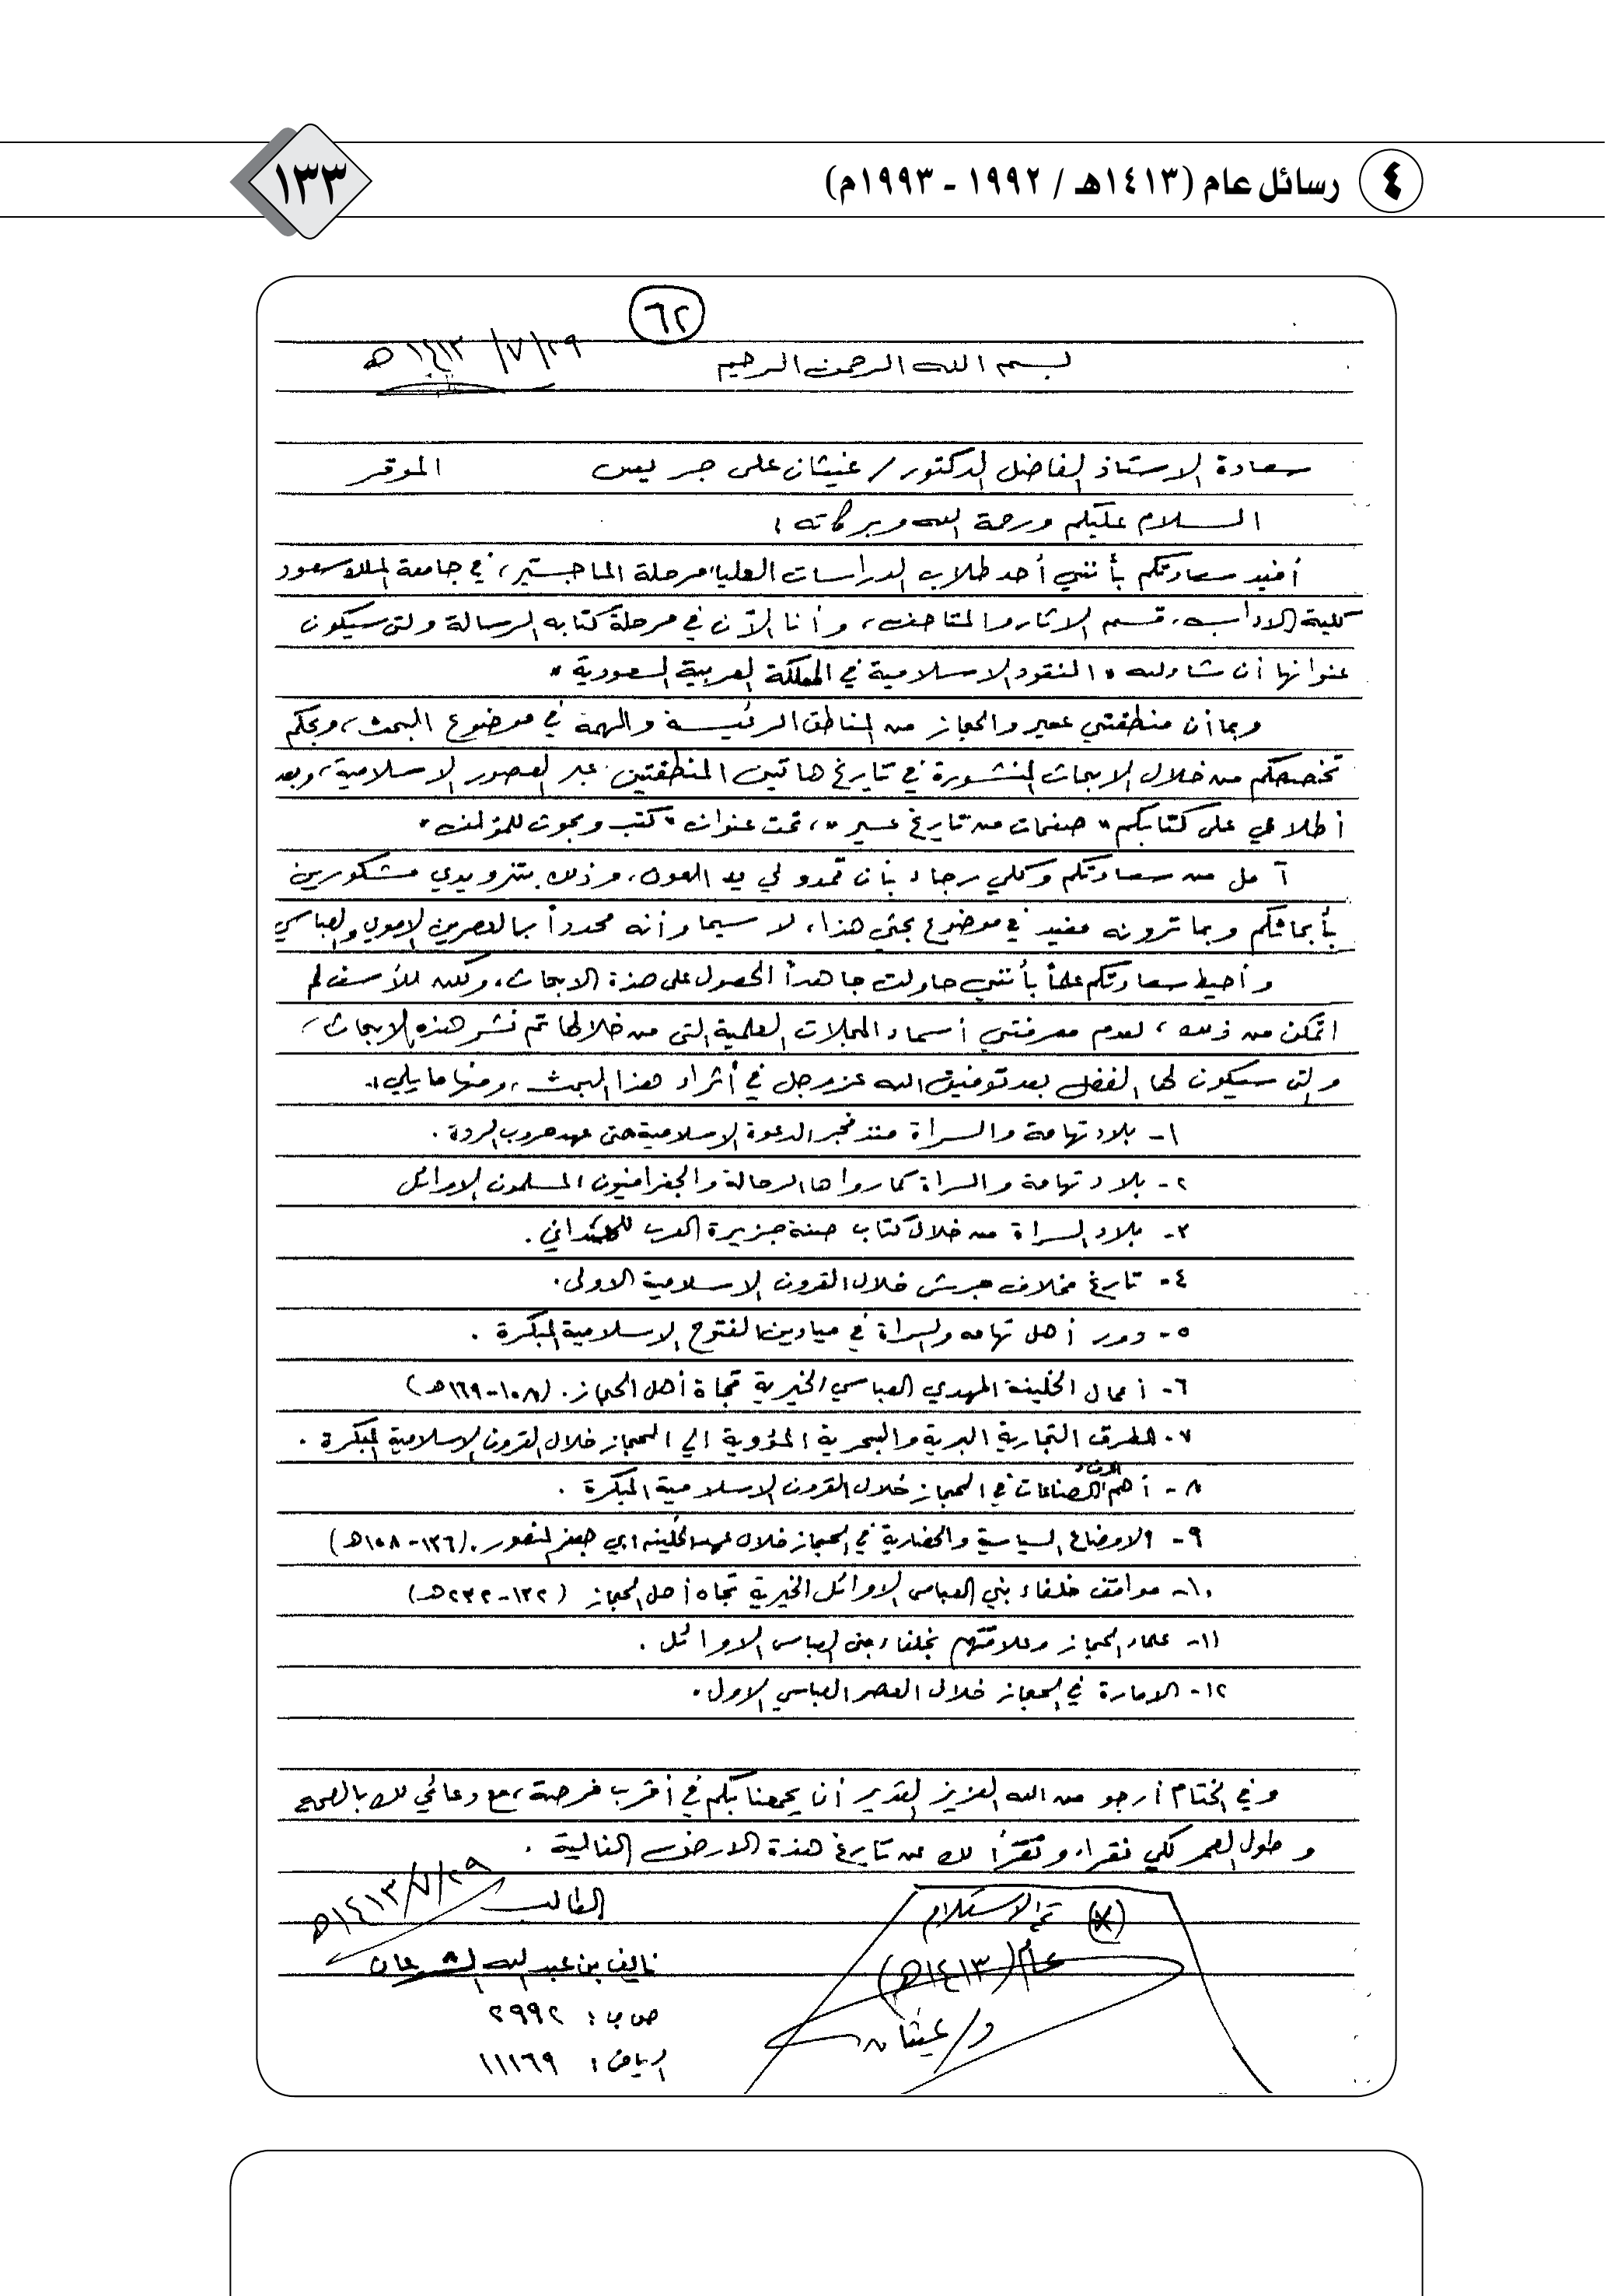 ٤ رسائل عام (١٤١٣هـ / ١٩٩٢ - ١٩٩٣م)
١٣٣
٦٢
٢٩/٧/١٤١٣هـ
بسم الله الرحمن الرحيم
سعادة الاستاذ الفاضل الدكتور/ غيثان على جريس الموقر
السلام عليكم ورحمة الله وبركاته :
أفيد سعادتكم بأنني أحد طلاب الدراسات العليا، مرحلة الماجستير، في جامعة الملك سعود
كلية الاداب، قسم الاثار والمتاحف، وأنا الآن في مرحلة كتابه الرسالة والتى سيكون
عنوانها أن شاء الله " النقود الاسلامية في المملكة العربية السعودية "
وبما أن منطقتي عسير والحجاز من المناطق الرئيسة والمهمة في موضوع البحث، وبحكم
تخصصكم من خلال الابحاث المنشورة في تاريخ هاتين المنطقتين عبر العصور الاسلامية، وبعد
أطلاعي على كتابكم " صفحات من تاريخ عسير "، تحت عنوان " كتب وبحوث للمؤلف "
آمل من سعادتكم وكلي رجاء بأن تمدو لي يد العون، وذلك بتزويدي مشكورين
بأبحاثكم وبما ترونه مفيد في موضوع بحثي هذا، لا سيما وأنه محدداً بالعصرين الاموي والعباسي
وأحيط سعادتكم علماً بأنني حاولت جاهداً الحصول على هذة الابحاث، ولكن للأسف لم
اتمكن من ذلك، لعدم معرفتي أسماء المجلات العلمية التى من خلالها تم نشر هذه الابحاث،
والتى سيكون لها الفضل بعد توفيق الله عز وجل في أثراء هذا البحث، ومنها مايلي :-
١- بلاد تهامة والسراة منذ فجر الدعوة الاسلامية حتى عهد حروب الردة .
٢- بلاد تهامة والسراة كما رواها الرحالة والجغرافيون المسلمون الاوائل
٣- بلاد السراة من خلال كتاب صفة جزيرة العرب للهمداني .
٤- تاريخ مخلاف جرش خلال القرون الاسلامية الاولى .
٥- دور أهل تهامه والسراة في ميادين الفتوح الاسلامية المبكرة .
٦- أعمال الخليفة المهدي العباسي الخيرية تجاة أهل الحجاز . (١٥٨-١٦٩هـ)
٧- الطرق التجارية البرية والبحرية المؤدية الي الحجاز خلال القرون الاسلامية المبكرة .
٨- أهم الصناعات في الحجاز خلال القرون الاسلامية المبكرة .
٩- الاوضاع السياسية والحضارية في الحجاز خلال عهد الخليفه ابي جعفر المنصور . (١٣٦-١٥٨هـ)
١٠- مواقف خلفاء بني العباس الاوائل الخيرية تجاه أهل الحجاز (١٣٢-٢٣٢هـ)
١١- علماء الحجاز وعلاقتهم بخلفاء بني العباس الاوائل .
١٢- الامارة في الحجاز خلال العصر العباسي الاول .
وفي الختام أرجو من الله العزيز القدير أن يجمعنا بكم في أقرب فرصة، مع دعائي لك بالصحة
وطول العمر لكي نقراء ونقرأ لك عن تاريخ هذة الارض الغالية .
الطالب ٢٩/٧/١٤١٣هـ
نايف بن عبد الله الشرعان
ص ب : ٢٩٩٢
الرياض : ١١١٦٩
(x) تم الاستلام
عام (١٤١٣هـ)
د/ غيثان